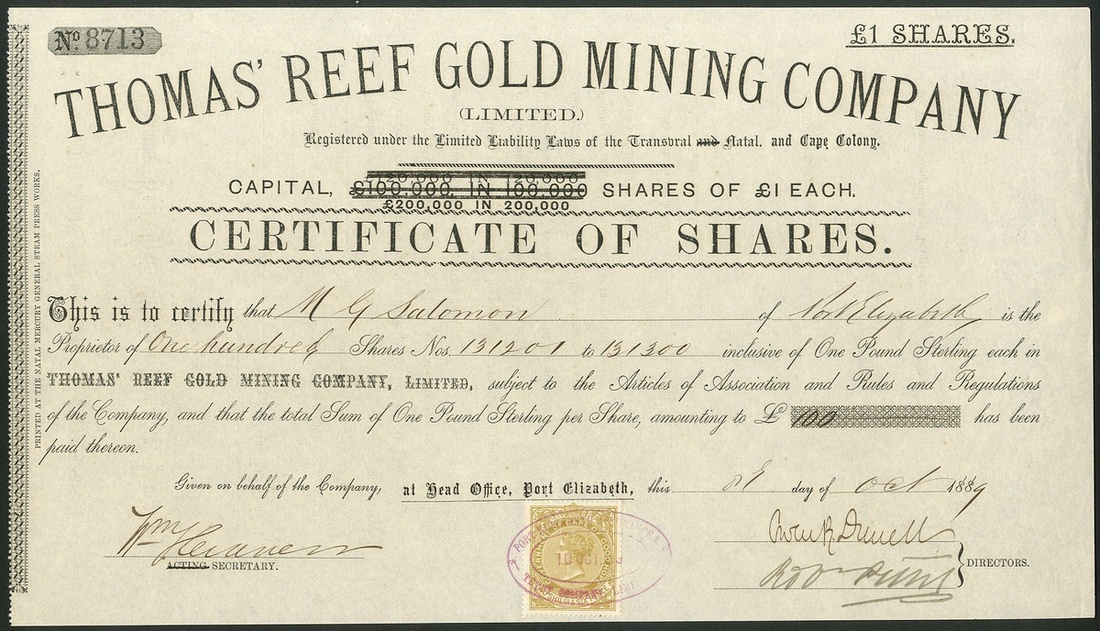 No. 8713
£1 SHARES.
THOMAS' REEF GOLD MINING COMPANY
(LIMITED.)
Registered under the Limited Liability Laws of the Transvaal and Natal. and Cape Colony.
£120,000 IN 120,000
CAPITAL, £100,000, IN 100,000 SHARES OF £1 EACH.
£200,000 IN 200,000
CERTIFICATE OF SHARES.
This is to certify that M G Salomon of Port Elizabeth is the
Proprietor of One hundred Shares Nos. 131201 to 131300 inclusive of One Pound Sterling each in
THOMAS' REEF GOLD MINING COMPANY, LIMITED, subject to the Articles of Association and Rules and Regulations
of the Company, and that the total Sum of One Pound Sterling per Share, amounting to £ 100 has been
paid thereon.
Given on behalf of the Company, at Head Office, Port Elizabeth, this day of Oct 1889
ACTING SECRETARY.
DIRECTORS.
10 OCT
PRINTED AT THE NATAL MERCURY GENERAL STEAM PRESS WORKS.